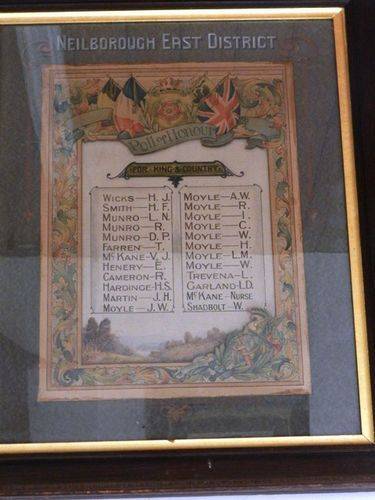 NEILBOROUGH EAST DISTRICT
Roll of Honour
FOR KING & COUNTRY
WICKS—H. J.
SMITH—H. F.
MUNRO—L. N.
MUNRO—R.
MUNRO—D. P.
FARREN—T.
McKANE—V. J.
HENERY—E.
CAMERON—R.
HARDINGE—H.S.
MARTIN—J. H.
MOYLE—J. W.
MOYLE—A.W.
MOYLE—R.
MOYLE—I.
MOYLE—C.
MOYLE—W.
MOYLE—H.
MOYLE—L.M.
MOYLE—W.
TREVENA—L.
GARLAND—L.D.
McKANE—NURSE
SHADBOLT—W.